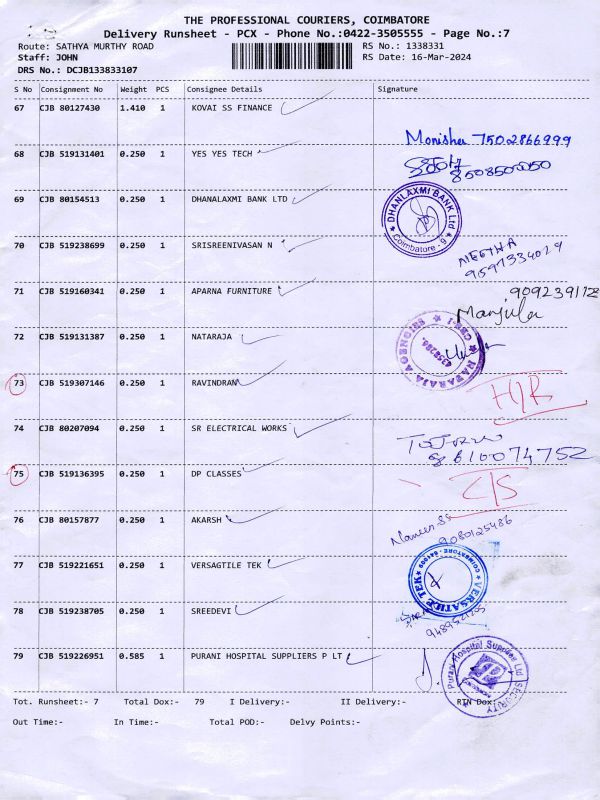 THE PROFESSIONAL COURIERS, COIMBATORE
Delivery Runsheet - PCX - Phone No.:0422-3505555 - Page No.:7
Route: SATHYA MURTHY ROAD RS No.: 1338331
Staff: JOHN RS Date: 16-Mar-2024
DRS No.: DCJB133833107
S No Consignment No Weight PCS Consignee Details Signature
67 CJB 80127430 1.410 1 KOVAI SS FINANCE
Monisha 7502866999
68 CJB 519131401 0.250 1 YES YES TECH
69 CJB 80154513 0.250 1 DHANALAXMI BANK LTD
DHANLAXMI BANK Ltd Coimbatore - 9
70 CJB 519238699 0.250 1 SRISREENIVASAN N
71 CJB 519160341 0.250 1 APARNA FURNITURE
Manjula
72 CJB 519131387 0.250 1 NATARAJA
73 CJB 519307146 0.250 1 RAVINDRAN
74 CJB 80207094 0.250 1 SR ELECTRICAL WORKS
75 CJB 519136395 0.250 1 DP CLASSES
76 CJB 80157877 0.250 1 AKARSH
9080125486
77 CJB 519221651 0.250 1 VERSAGTILE TEK
VERSATILE TEK COIMBATORE
78 CJB 519238705 0.250 1 SREEDEVI
79 CJB 519226951 0.585 1 PURANI HOSPITAL SUPPLIERS P LT
Purani Hospital Supplies Ltd SECURITY
Tot. Runsheet:- 7 Total Dox:- 79 I Delivery:- II Delivery:- RTN Dox:
Out Time:- In Time:- Total POD:- Delvy Points:-